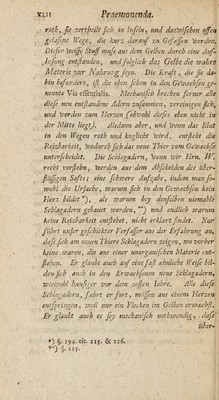 XLII Praemonenda.
roth, sie zertheilt sich in Inseln, und dazwischen offen
gelassne Wege, die kurz darauf zu Gefässen werden.
Dieser weisse Stoff muss aus dem Gelben durch eine Auf-
lösung entstanden, und folglich das Gelbe die wahre
Materie zur Nahrung seyn. Die Kraft, die sie da-
hin befördert, ist die oben schon in den Gewächsen ge-
nannte Vis essentialis. Mechanisch brechen ferner alle
diese neu entstandene Adern zusammen, vereinigen sich,
und werden zum Herzen (obwohl dieses eben nicht in
der Mitte liegt). Alsdenn aber, und wenn das Blut
in den Wegen roth und kuglicht wird, entsteht die
Reizbarkeit, wodurch sich das neue Thier vom Gewächse
unterscheidet. Die Schlagadern, wenn wir Hrn. W.
recht verstehn, werden aus dem Abscheiden des über-
flüssigen Saftes; eine schwere Aufgabe, indem man so-
wohl die Ursache, warum sich in den Gewächsen kein
Herz bildet *), als warum bey denselben niemahls
Schlagadern gebauet werden **) und endlich warum
keine Reizbarkeit entsteht, nicht erklärt findet. Nur
führt unser geschickter Verfasser aus der Erfahrung an,
dass sich am neuen Thiere Schlagadern zeigen, wo vorher
keine waren, die aus einer unorganischen Materie ent-
stehen. Er glaubt auch auf eine fast ähnliche Weise bil-
den sich auch in den Erwachsenen neue Schlagadern,
wiewohl häufiger vor dem 20sten Jahre. Alle diese
Schlagadern, fährt er fort, müssen aus einem Herzen
entspringen, weil nur ein Flecken im Gelben erwächst.
Er glaubt auch es sey mechanisch nothwendig, dass
über-
*) §. 194. cit. 215. & 226.
**) §. 225.